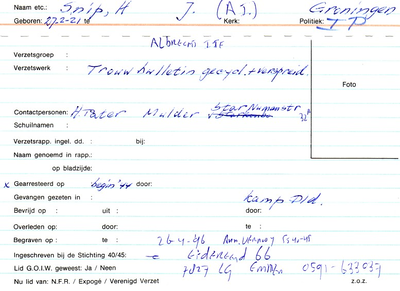 Naam etc.: Snip, H J. (A.J.) Groningen
Geboren: 27.2-21 te Kerk: Politiek: I P
ALBRECHT ITE
Verzetsgroep :
Verzetswerk : Trouw bulletin gecycl. + verspreid.
Foto
Contactpersonen: H. Pater Mulder v Star Numanstr
Schuilnamen :
Verzetsrapp. ingel. dd. : bij:
Naam genoemd in rapp.:
op bladzijde:
x Gearresteerd op : begin '44 door:
Gevangen gezeten in : kamp Dld.
Bevrijd op : uit : door:
Overleden op : door: te :
Begraven op : te : 26-4-96
Ingeschreven bij de Stichting 40/45: Eiderend 66
Lid G.O.I.W. geweest: Ja / Neen 7827 LG Emmen 0591-633037
Nu lid van: N.F.R. / Expogé / Verenigd Verzet z.o.z.